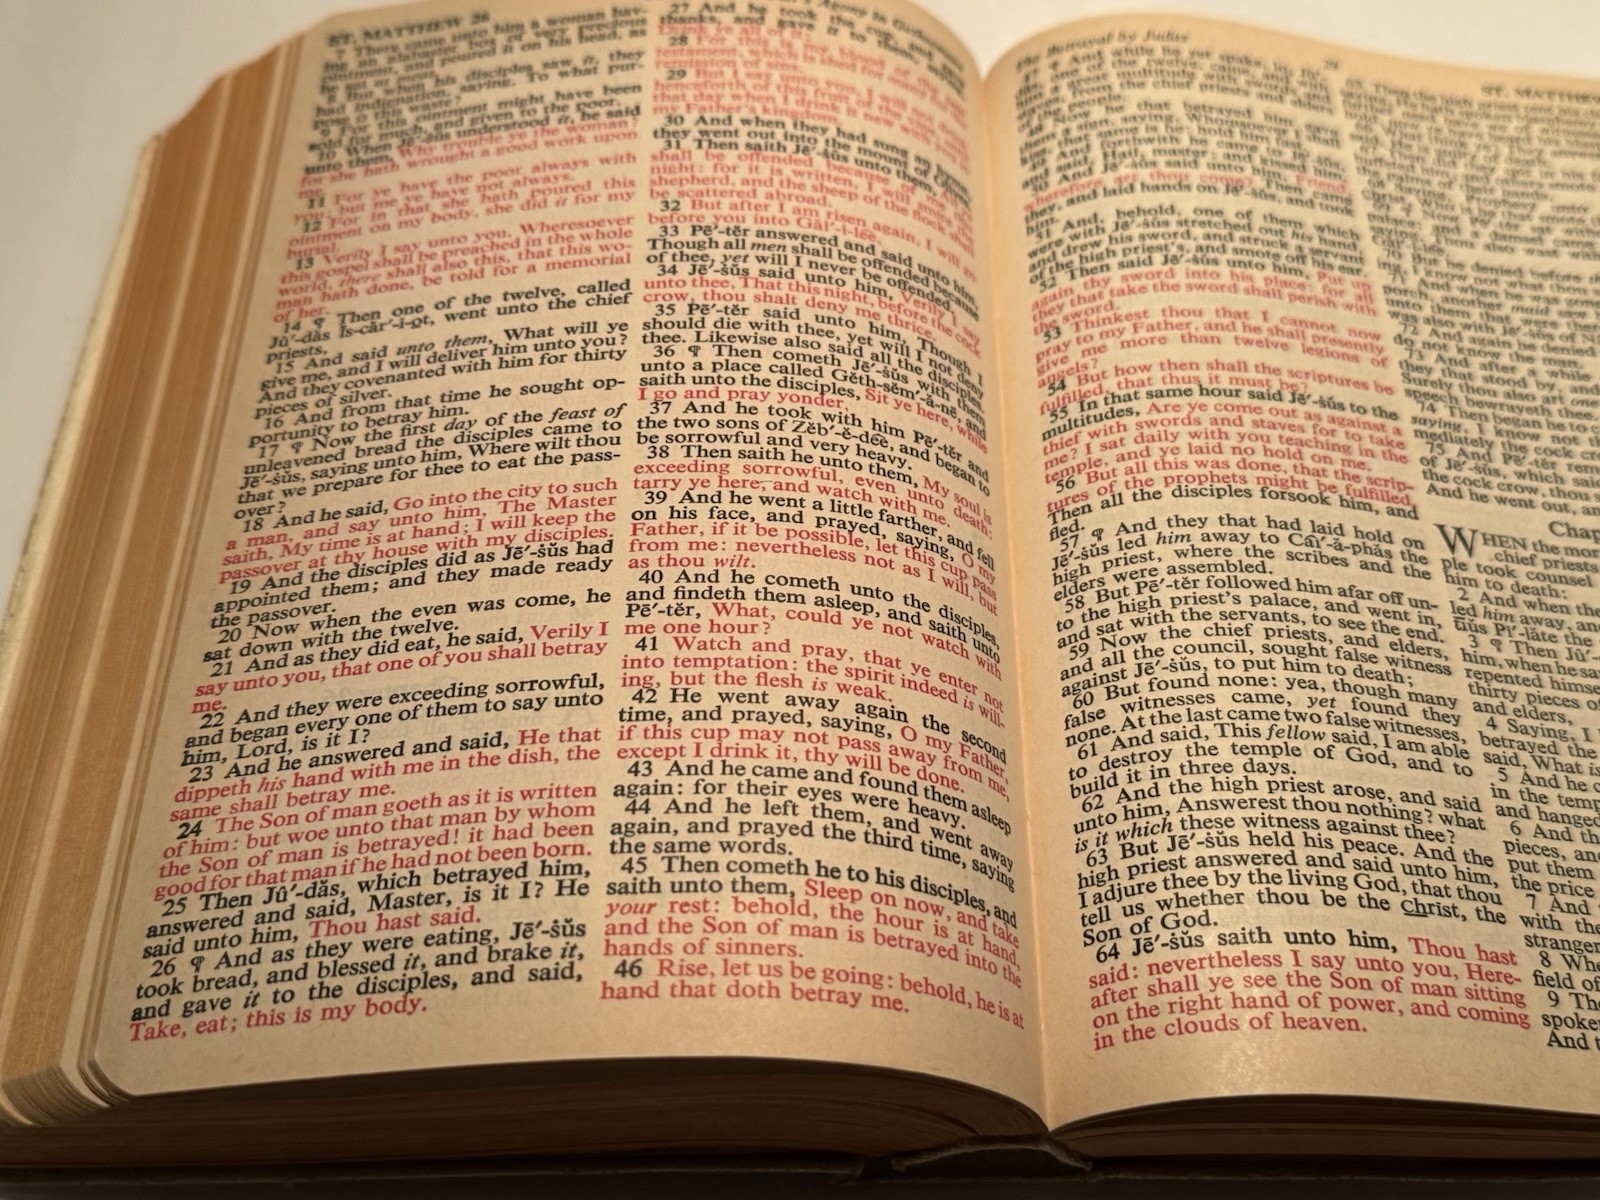 ST. MATTHEW 26
7 There came unto him a woman hav-
ing an alabaster box of very precious
ointment, and poured it on his head, as
he sat at meat.
8 But when his disciples saw it, they
had indignation, saying, To what pur-
pose is this waste?
9 For this ointment might have been
sold for much, and given to the poor.
10 When Jē′-s̈us understood it, he said
unto them, Why trouble ye the woman?
for she hath wrought a good work upon
me.
11 For ye have the poor always with
you; but me ye have not always.
12 For in that she hath poured this
ointment on my body, she did it for my
burial.
13 Verily I say unto you, Wheresoever
this gospel shall be preached in the whole
world, there shall also this, that this wo-
man hath done, be told for a memorial
of her.
14 ¶ Then one of the twelve, called
Jû′-dȧs Ĭs-căr′-ĭ-ot, went unto the chief
priests,
15 And said unto them, What will ye
give me, and I will deliver him unto you?
And they covenanted with him for thirty
pieces of silver.
16 And from that time he sought op-
portunity to betray him.
17 ¶ Now the first day of the feast of
unleavened bread the disciples came to
Jē′-ṡŭs, saying unto him, Where wilt thou
that we prepare for thee to eat the pass-
over?
18 And he said, Go into the city to such
a man, and say unto him, The Master
saith, My time is at hand; I will keep the
passover at thy house with my disciples.
19 And the disciples did as Jē′-ṡŭs had
appointed them; and they made ready
the passover.
20 Now when the even was come, he
sat down with the twelve.
21 And as they did eat, he said, Verily I
say unto you, that one of you shall betray
me.
22 And they were exceeding sorrowful,
and began every one of them to say unto
him, Lord, is it I?
23 And he answered and said, He that
dippeth his hand with me in the dish, the
same shall betray me.
24 The Son of man goeth as it is written
of him: but woe unto that man by whom
the Son of man is betrayed! it had been
good for that man if he had not been born.
25 Then Jû′-dăs, which betrayed him,
answered and said, Master, is it I? He
said unto him, Thou hast said.
26 ¶ And as they were eating, Jē′-ṡŭs
took bread, and blessed it, and brake it,
and gave it to the disciples, and said,
Take, eat; this is my body.
27 And he took the cup, and gave
thanks, and gave it to them, saying,
Drink ye all of it;
28 For this is my blood of the new
testament, which is shed for many for the
remission of sins.
29 But I say unto you, I will not drink
henceforth of this fruit of the vine, until
that day when I drink it new with you in
my Father's kingdom.
30 And when they had sung an hymn,
they went out into the mount of
31 Then saith Jē′-ṡŭs unto them, All ye
shall be offended because of me this
night: for it is written, I will smite the
shepherd, and the sheep of the flock shall
be scattered abroad.
32 But after I am risen again, I will go
before you into Găl′-ĭ-lēe.
33 Pē′-tẽr answered and said unto him,
Though all men shall be offended because
of thee, yet will I never be offended.
34 Jē′-ṡŭs said unto him, Verily I say
unto thee, That this night, before the cock
crow, thou shalt deny me thrice.
35 Pē′-tẽr said unto him, Though I
should die with thee, yet will I not deny
thee. Likewise also said all the disciples.
36 ¶ Then cometh Jē′-ṡŭs with them
unto a place called Gĕth-sĕm′-ȧ-nē, and
saith unto the disciples, Sit ye here, while
I go and pray yonder.
37 And he took with him Pē′-tẽr and
the two sons of Zĕb′-ĕ-dēe, and began to
be sorrowful and very heavy.
38 Then saith he unto them, My soul is
exceeding sorrowful, even unto death:
tarry ye here, and watch with me.
39 And he went a little farther, and fell
on his face, and prayed, saying, O my
Father, if it be possible, let this cup pass
from me: nevertheless not as I will, but
as thou wilt.
40 And he cometh unto the disciples,
and findeth them asleep, and saith unto
Pē′-tẽr, What, could ye not watch with
me one hour?
41 Watch and pray, that ye enter not
into temptation: the spirit indeed is will-
ing, but the flesh is weak.
42 He went away again the second
time, and prayed, saying, O my Father,
if this cup may not pass away from me,
except I drink it, thy will be done.
43 And he came and found them asleep
again: for their eyes were heavy.
44 And he left them, and went away
again, and prayed the third time, saying
the same words.
45 Then cometh he to his disciples, and
saith unto them, Sleep on now, and take
your rest: behold, the hour is at hand,
and the Son of man is betrayed into the
hands of sinners.
46 Rise, let us be going: behold, he is at
hand that doth betray me.
The Betrayal by Judas
47 ¶ And while he yet spake, lo,
one of the twelve, came, and
a great multitude with swords and
staves, from the chief priests and elders
of the people.
48 Now he that betrayed him gave
them a sign, saying, Whomsoever I shall
kiss, that same is he: hold him fast.
49 And forthwith he came to Jē′-ṡŭs,
and said, Hail, master; and kissed him.
50 And Jē′-ṡŭs said unto him, Friend,
wherefore art thou come? Then came
they, and laid hands on Jē′-ṡŭs, and took
him.
51 And, behold, one of them which
were with Jē′-ṡŭs stretched out his hand,
and drew his sword, and struck a servant
of the high priest's, and smote off his ear.
52 Then said Jē′-ṡŭs unto him, Put up
again thy sword into his place: for all
they that take the sword shall perish with
the sword.
53 Thinkest thou that I cannot now
pray to my Father, and he shall presently
give me more than twelve legions of
angels?
54 But how then shall the scriptures be
fulfilled, that thus it must be?
55 In that same hour said Jē′-ṡŭs to the
multitudes, Are ye come out as against a
thief with swords and staves for to take
me? I sat daily with you teaching in the
temple, and ye laid no hold on me.
56 But all this was done, that the scrip-
tures of the prophets might be fulfilled.
Then all the disciples forsook him, and
fled.
57 ¶ And they that had laid hold on
Jē′-ṡŭs led him away to Cāi′-ȧ-phăs the
high priest, where the scribes and the
elders were assembled.
58 But Pē′-tẽr followed him afar off un-
to the high priest's palace, and went in,
and sat with the servants, to see the end.
59 Now the chief priests, and elders,
and all the council, sought false witness
against Jē′-ṡŭs, to put him to death;
60 But found none: yea, though many
false witnesses came, yet found they
none. At the last came two false witnesses,
61 And said, This fellow said, I am able
to destroy the temple of God, and to
build it in three days.
62 And the high priest arose, and said
unto him, Answerest thou nothing? what
is it which these witness against thee?
63 But Jē′-ṡŭs held his peace. And the
high priest answered and said unto him,
I adjure thee by the living God, that thou
tell us whether thou be the christ, the
Son of God.
64 Jē′-ṡŭs saith unto him, Thou hast
said: nevertheless I say unto you, Here-
after shall ye see the Son of man sitting
on the right hand of power, and coming
in the clouds of heaven.
ST. MATTHEW
70 But he denied before
I know not what thou
71 And when he was gone
porch, another maid saw
unto them that were
was also with Jē′-ṡŭs of
72 And again he denied
do not know the man.
73 And after a while
they that stood by, and
Surely thou also art one
speech bewrayeth thee.
74 Then began he to
saying, I know not the
mediately the cock crew
75 And Pē′-tẽr rem
of Jē′-ṡŭs, which said
the cock crow, thou s
And he went out, an
Chap
WHEN the mor
chief priests
ple took counsel
him to death:
2 And when the
led him away, an
tĭŭs Pī′-lăte the
3 ¶ Then Jû′-
him, when he sa
repented himse
thirty pieces of
and elders,
4 Saying, I
betrayed the
said, What is
5 And he c
in the temp
and hanged
6 And th
pieces, and
put them
the price
7 And
with the
stranger
8 Whe
field of
9 The
spoke
And t